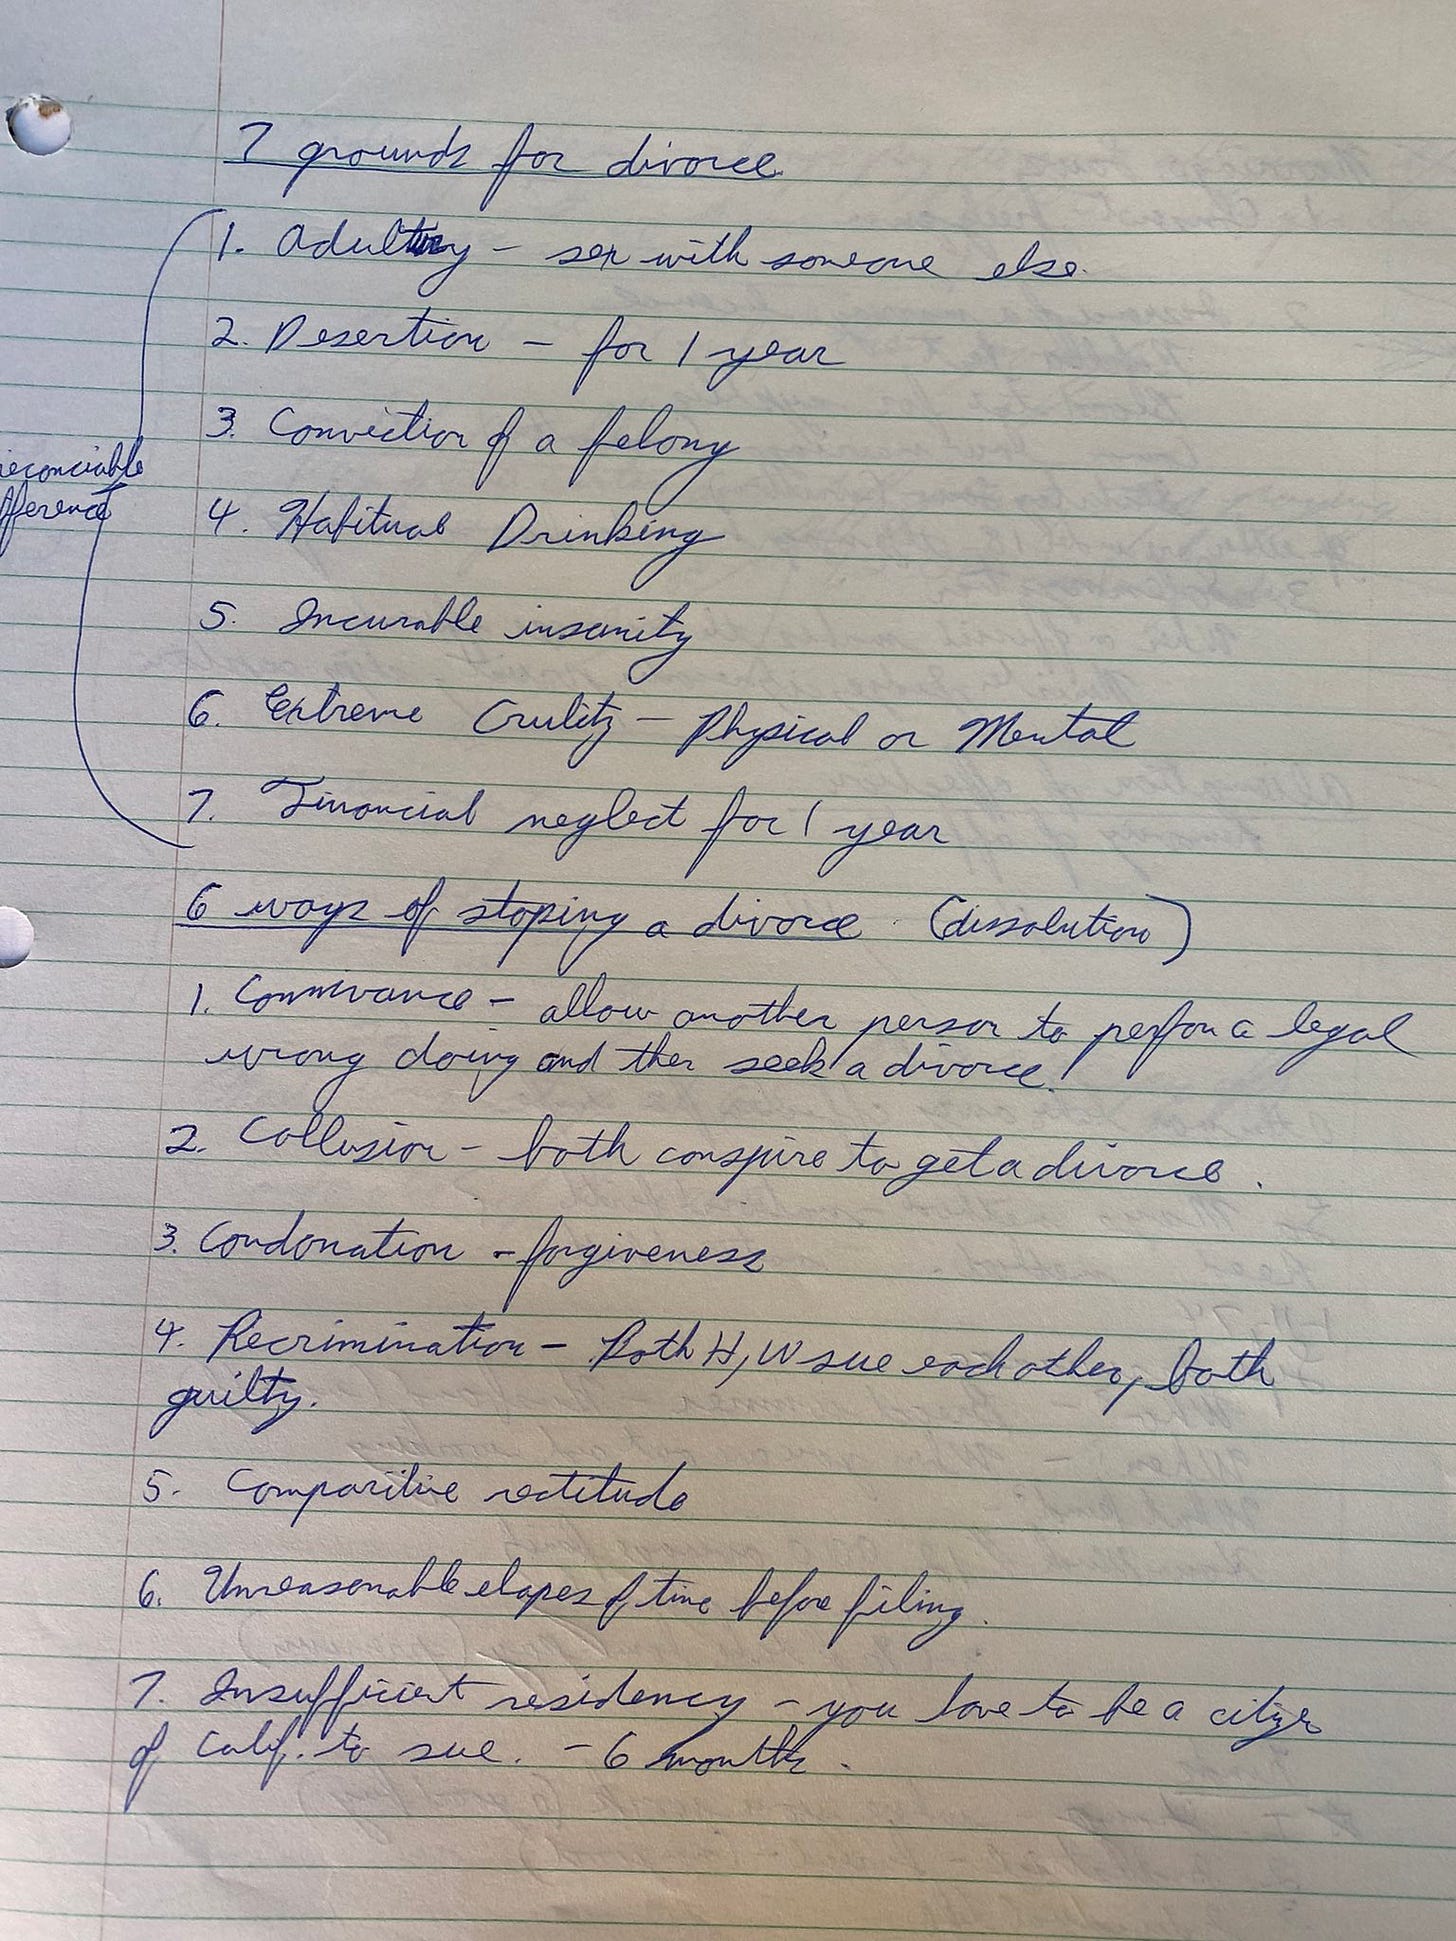 7 grounds for divorce
1. Adultry - sex with someone else.
2. Desertion - for 1 year
3. Conviction of a felony
reconciable
fference
4. Habitual Drinking
5. Incurable insanity
6. Extreme Crulity - Physical or Mental
7. Financial neglect for 1 year
6 ways of stoping a divorce (dissolution)
1. Connivance - allow another person to perfon a legal
wrong doing and then seek a divorce.
2. Collusion - both conspire to get a divorce.
3. Condonation - forgiveness
4. Recrimination - Both H, W sue each other, both
guilty.
5. Comparitive rectitude
6. Unreasonable elapes of time before filing.
7. Insufficient residency - you have to be a citizen
of Calif. to sue. - 6 months.